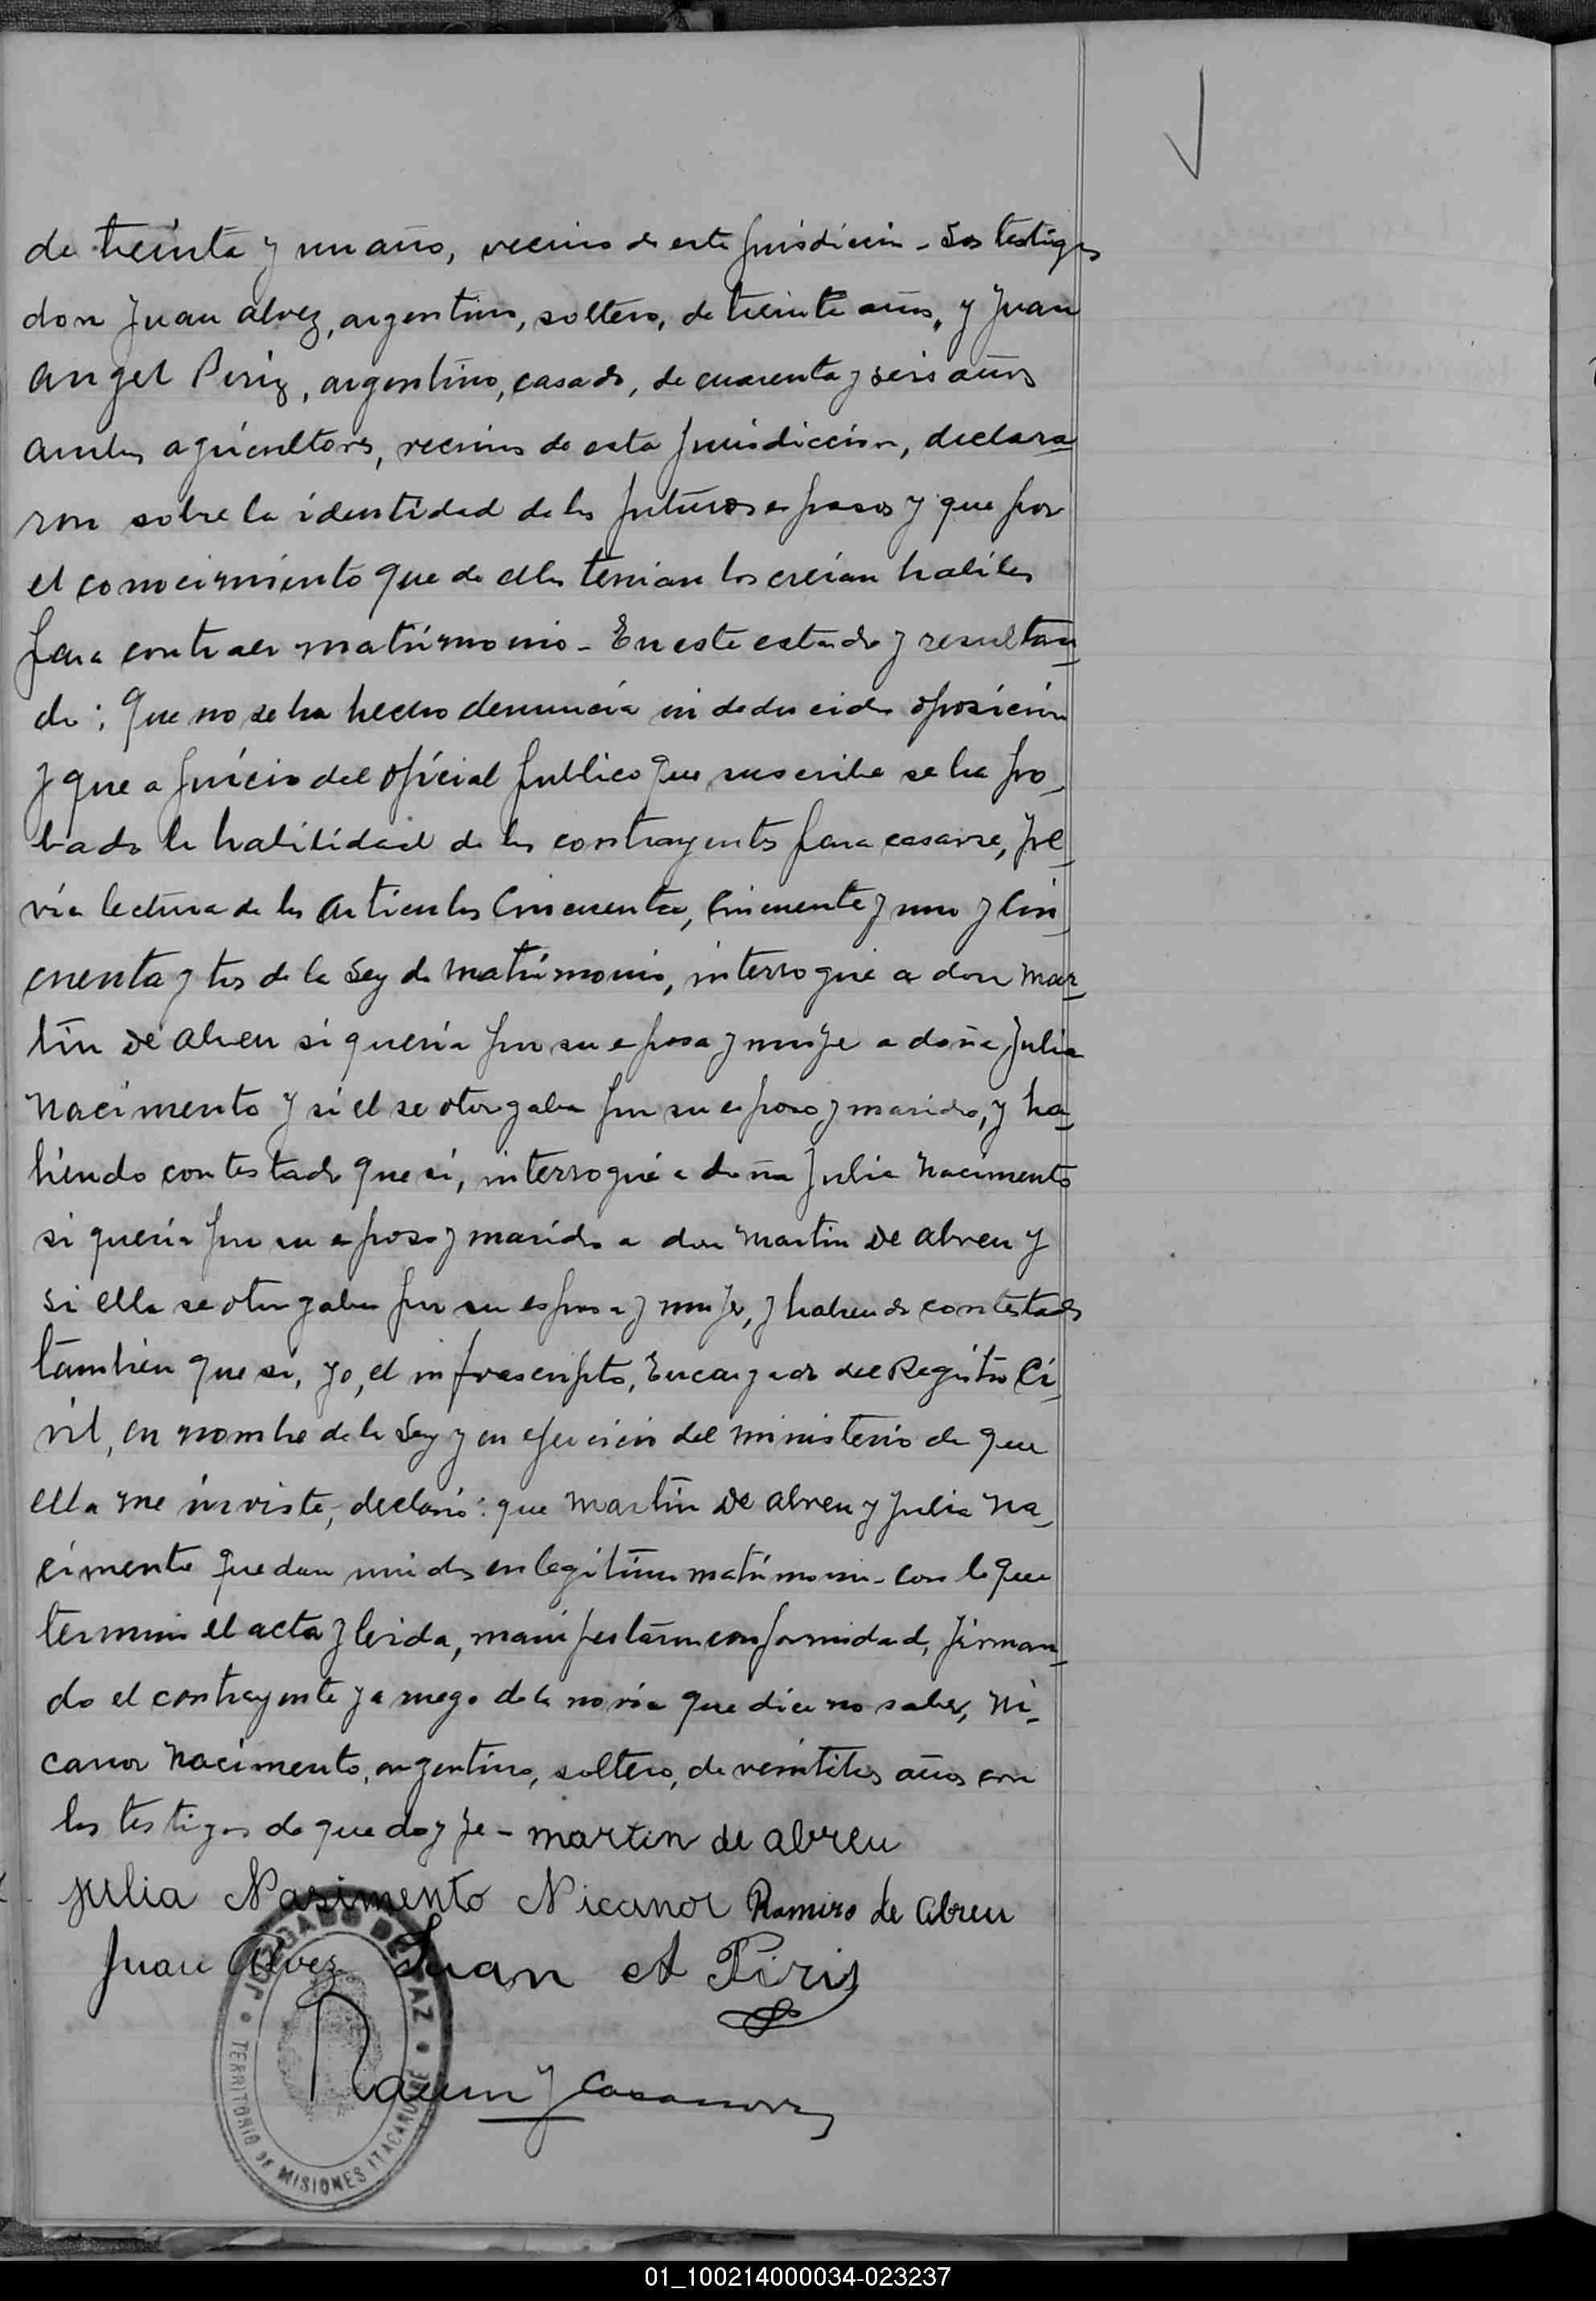 de treinta y un años, vecino de esta jurisdicción - Los testigos
don Juan Alvez, argentino, soltero, de treinta años, y Juan
Angel Piriz, argentino, casado, de cuarenta y seis años
ambos agricultores, vecinos de esta jurisdicción, declara-
ron sobre la identidad de los futuros esposos y que por
el conocimiento que de ellos tenian los creían habiles
para contraer matrimonio - En este estado y resultan-
do: Que no se ha hecho denuncia ni deducido oposición
y que a juicio del oficial publico que suscribe se ha pro-
bado la habilidad de los contrayentes para casarse, pre-
via lectura de los articulos Cincuenta, Cincuenta y uno y Cin-
cuenta y tres de la Ley de Matrimonio, interrogué a don Mar-
tín De Abreu si quería por su esposa y mujer a doña Julia
Nacimento y si el se otorgaba por su esposo y marido, y ha-
biendo contestado que sí, interrogué a doña Julia Nacimento
si quería por su esposo y marido a don Martin De Abreu y
si ella se otorgaba por su esposa y mujer, y habiendo contestado
también que si, yo, el infrascripto, Encargado del Registro Ci-
vil, en nombre de la Ley y en ejercicio del ministerio de que
ella me inviste, declaro: que Martín De Abreu y Julia Na-
cimento quedan unidos en legítimo matrimonio - con lo que
termino el acta y leida, manifestaron conformidad, firman-
do el contrayente y a ruego de la novia que dice no saber, Ni-
canor Nacimento, argentino, soltero, de veintitres años con
los testigos de que doy fe - martin de abreu
Julia Nasimento Nicanor Ramiro de Abreu
Juan Alvez Juan A Piris
Ramon J Casanova
JUZGADO DE PAZ
TERRITORIO DE MISIONES ITACARUARE
01_100214000034-023237